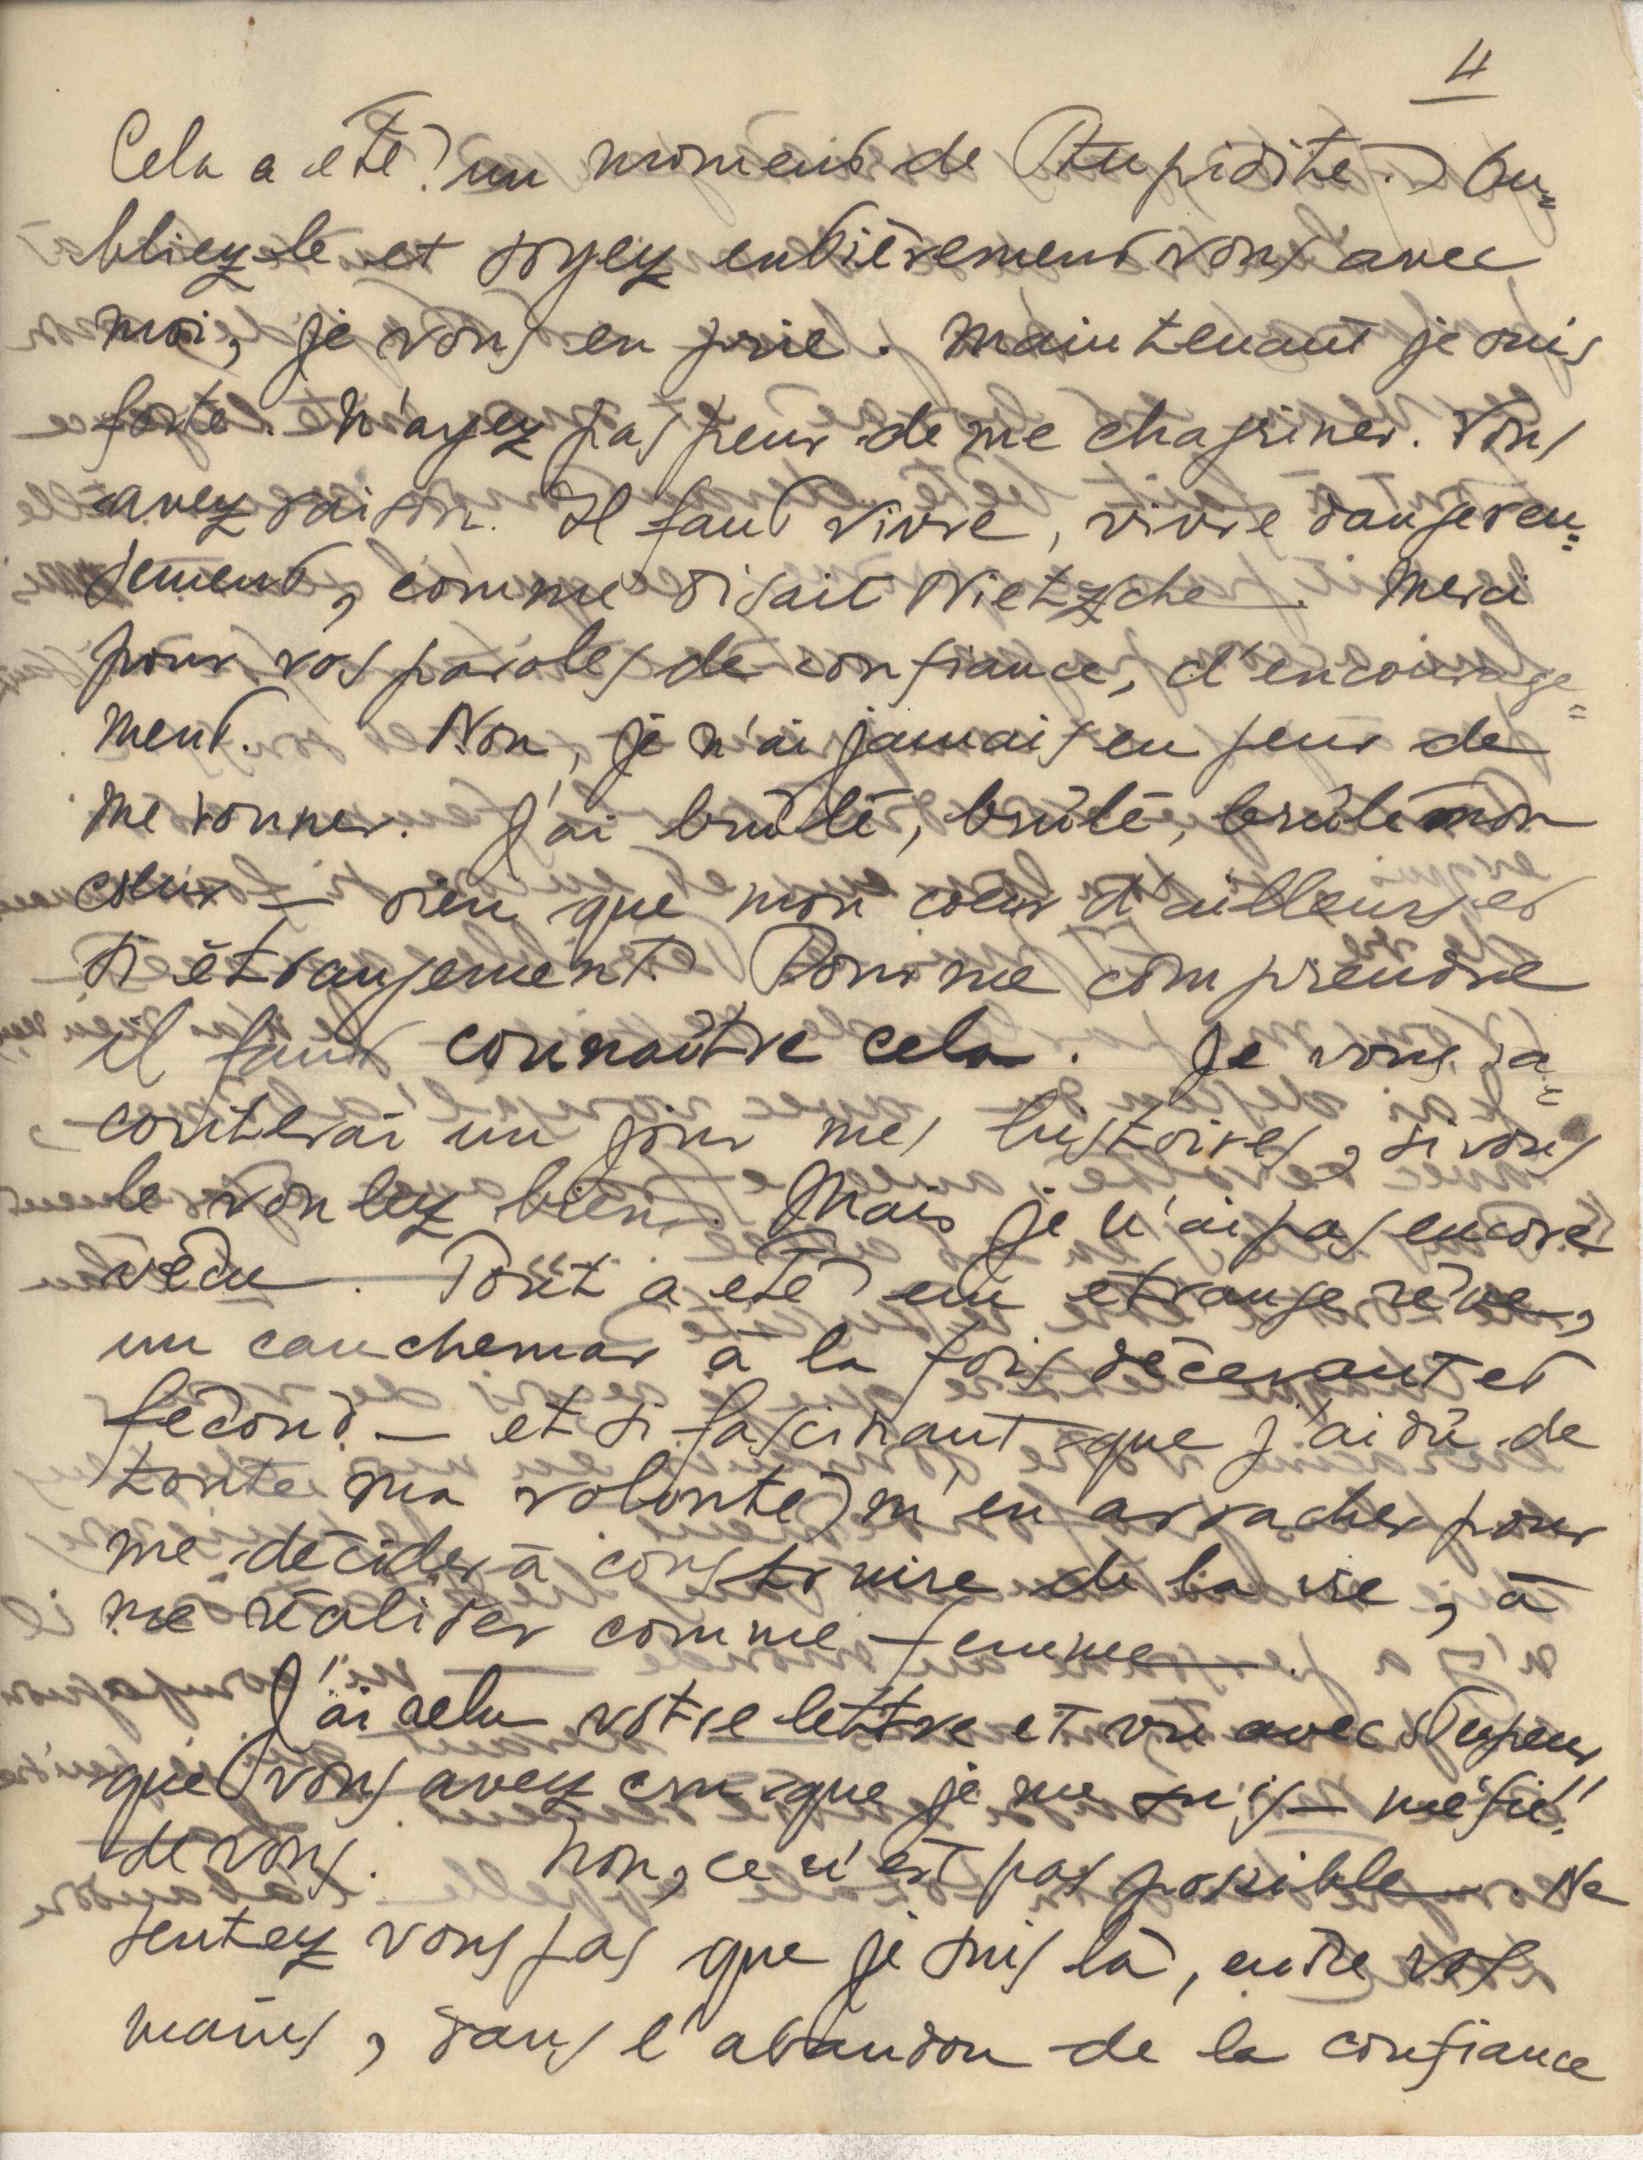 4
Cela a été un moment de stupidité. Ou=
bliez-le et soyez entièrement vous avec
moi, je vous en prie. Maintenant je suis
forte. N'ayez pas peur de me chagriner. Vous
avez raison. Il faut vivre, vivre dangereu=
sement, comme disait Nietzsche. Merci
pour vos paroles de confiance, d'encourage=
ment. Non, je n'ai jamais eu peur de
me donner. J'ai brûlé, brûlé, brûlé mon
cœur — rien que mon cœur d'ailleurs et
si étrangement. Pour me comprendre
il faut connaître cela. Je vous ra=
conterai un jour mes histoires, si vous
le voulez bien. Mais je n'ai pas encore
vécu. Tout a été un étrange rêve,
un cauchemar à la fois décevant et
fécond — et si fascinant que j'ai dû de
toute ma volonté m'en arracher pour
me décider à construire de la vie, à
me réaliser comme femme.
J'ai relu votre lettre et vu avec stupeur
que vous avez cru que je me suis — méfié!
de vous. Non, ce n'est pas possible. Ne
sentez vous pas que je suis là, entre vos
mains, dans l'abandon de la confiance